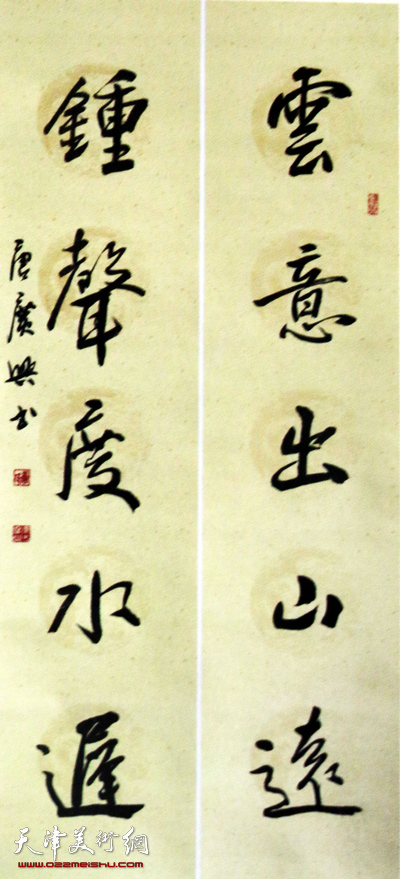 雲意出山遠
鍾聲度水遲
唐廣興书
天津美术網
www.022meishu.com